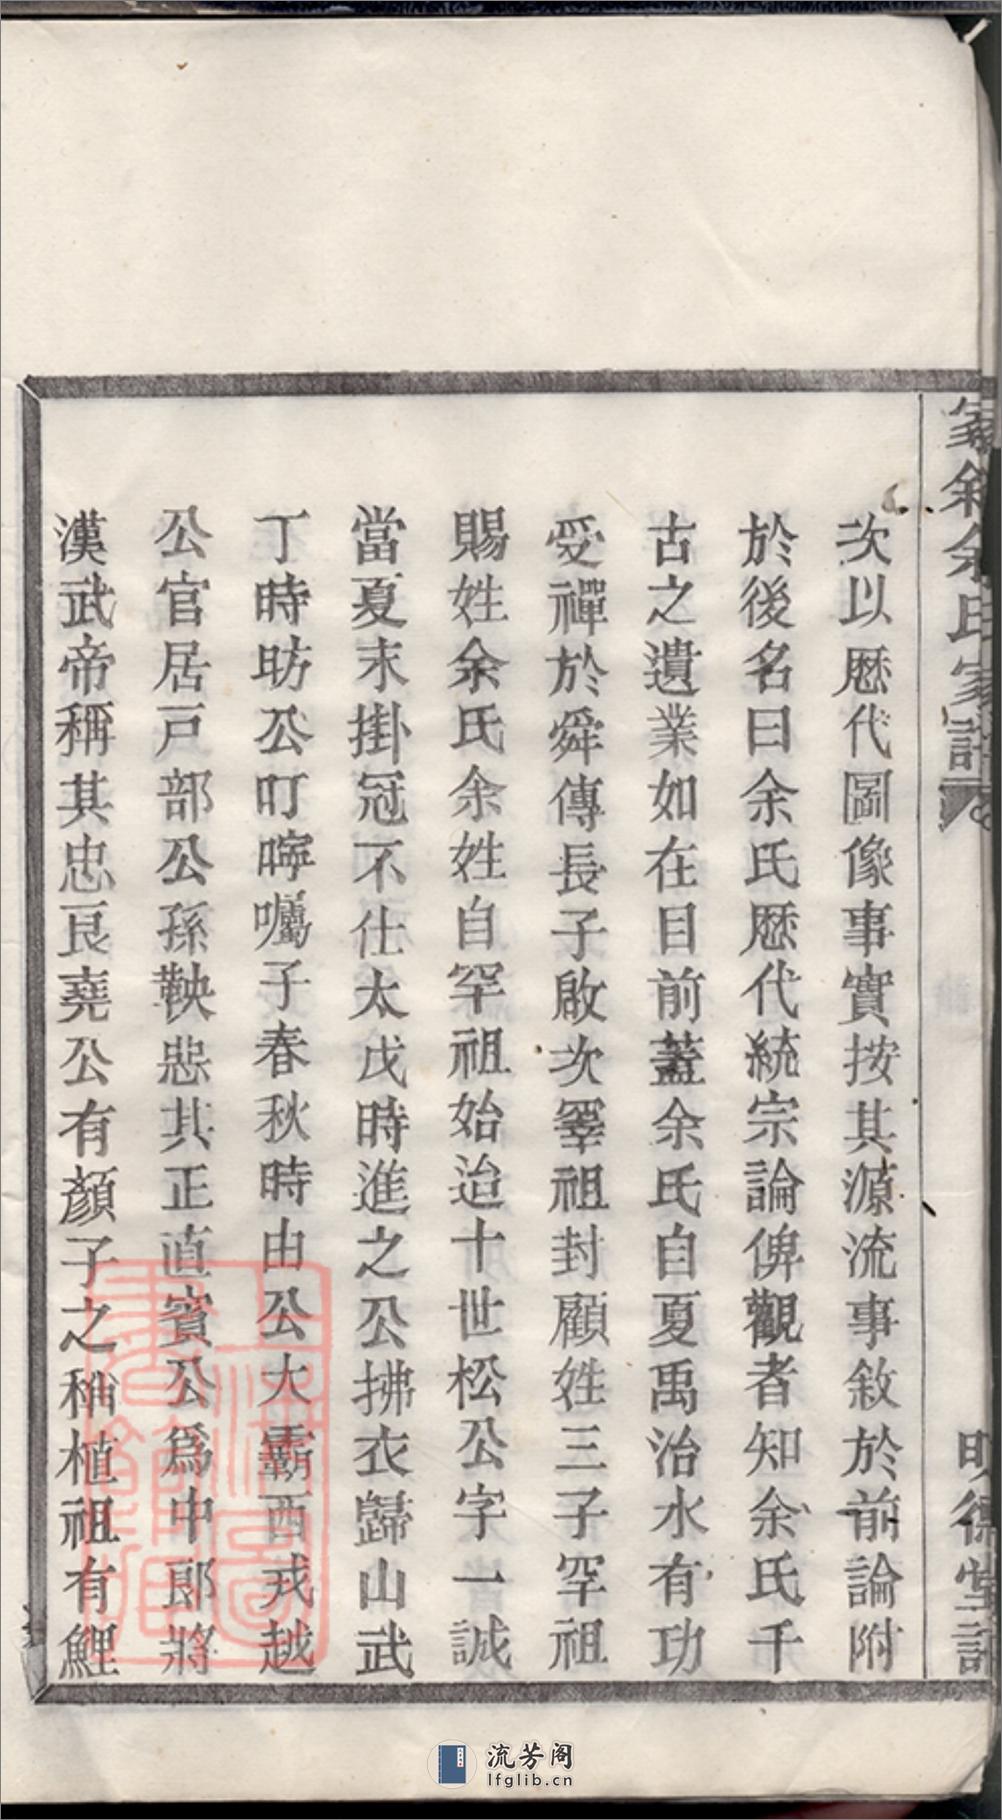 余氏家譜
次以歷代圖像事實按其源流事敘於前論附
於後名曰余氏歷代統宗論俾觀者知余氏千
古之遺業如在目前蓋余氏自夏禹治水有功
受禪於舜傳長子啟次罕祖封顧姓三子罕祖
賜姓余氏余姓自罕祖始迨十世松公字一誠
當夏末掛冠不仕太戊時進之公拂衣歸山武
丁時昉公叮嚀囑子春秋時由公大霸西戎越
公官居戸部公孫鞅惡其正直賓公爲中郎將
漢武帝稱其忠良堯公有顏子之稱植祖有鯉
上海圖書館藏
流芳阁
lfglib.cn